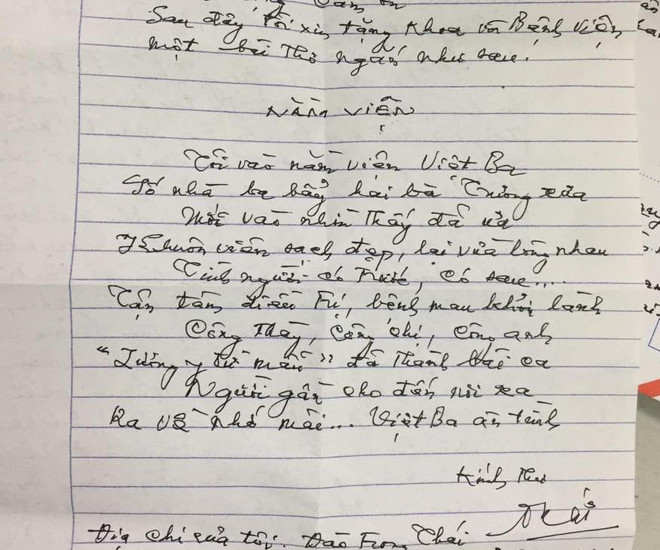 Sau đây tôi xin tặng Khoa và Bệnh viện
một bài thơ ngắn như sau:
NẰM VIỆN
Tôi vào nằm viện Việt Ba
Số nhà ba bẩy hai bà Trưng xưa
Mới vào nhìn thấy đã ưa
Khuôn viên sạch đẹp, lại vừa lòng nhau
Tình người có trước, có sau...
Tận tâm điều trị, bệnh mau khỏi lành
Công Thầy, công chị, công anh
"Lương y từ mẫu" đã thành bài ca
Người gần cho đến nơi xa
Ra về nhớ mãi... Việt Ba ân tình
Kính thư
Địa chỉ của tôi: Đào Thái